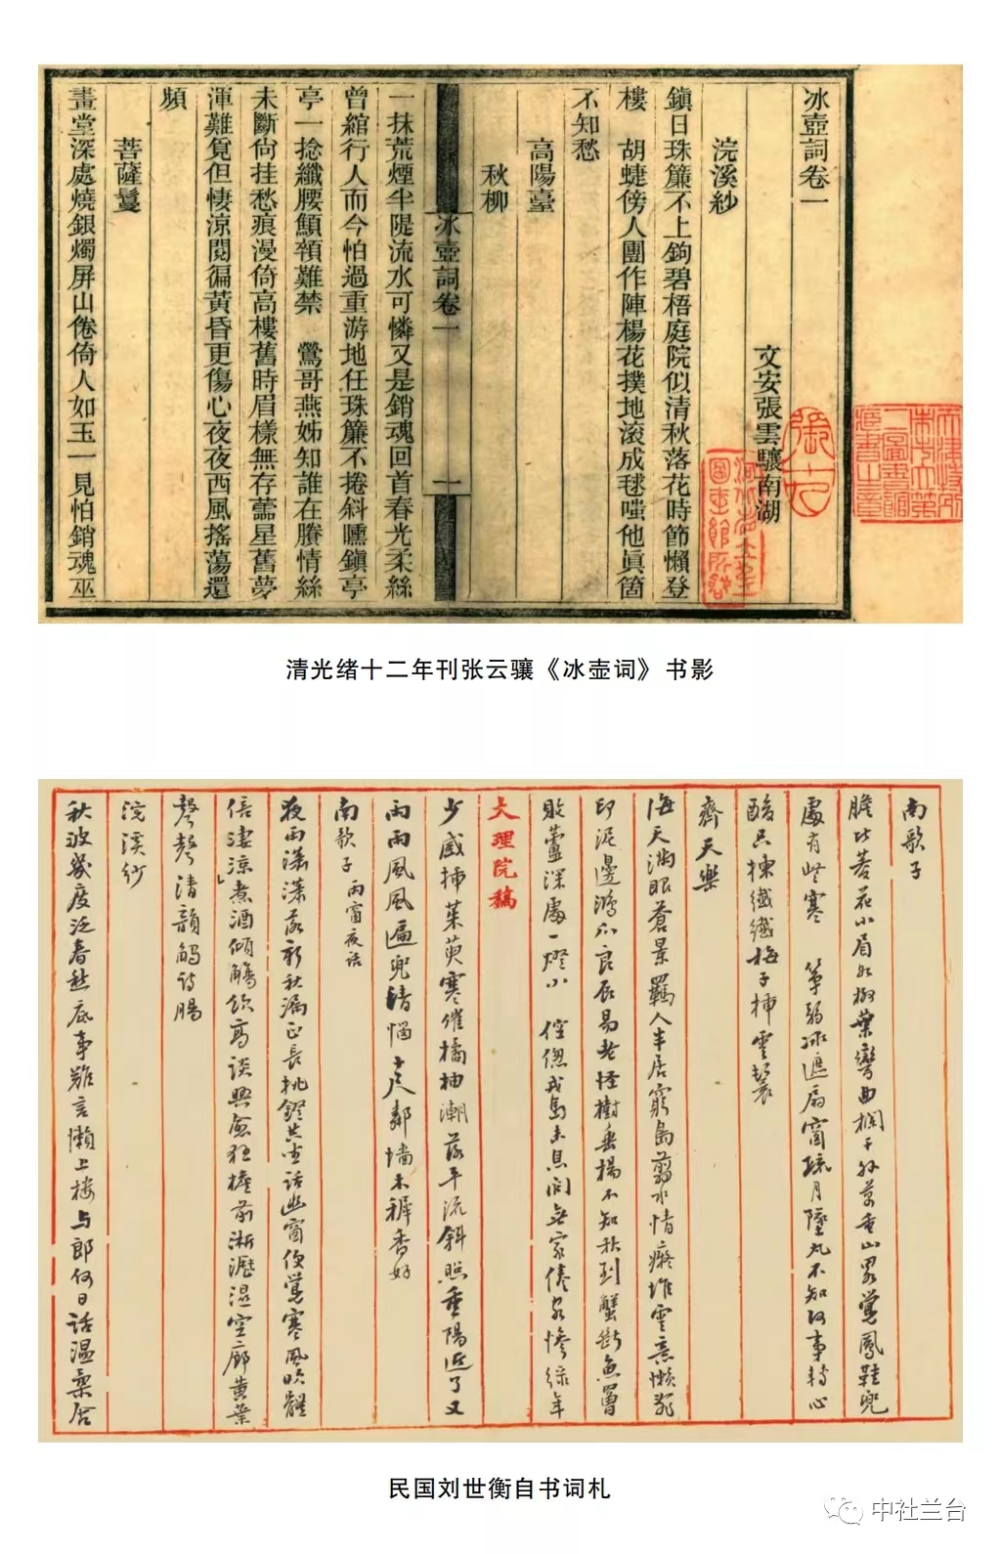 冰壺詞卷一
文安張雲驤南湖
浣溪紗
鎭日珠簾不上鉤碧梧庭院似清秋落花時節懶登
樓　胡蜨傍人團作陣楊花撲地滾成毬嗤他眞箇
不知愁
高陽臺
秋柳
冰壺詞卷一
一
一抹荒煙半隄流水可憐又是銷魂回首春光柔絲
曾綰行人而今怕過重游地任珠簾不捲斜曛鎭亭
亭一捻纖腰顦顇難禁　鶯哥燕姊知誰在賸情絲
未斷尙挂愁痕漫倚高樓舊時眉樣無存蘦星舊夢
渾難覓但悽涼閱徧黃昏更傷心夜夜西風搖蕩還
頻
菩薩鬘
畫堂深處燒銀燭屏山倦倚人如玉一見怕銷魂巫
清光绪十二年刊张云骧《冰壶词》书影
南歌子
膽比菩花小眉如柳葉彎曲欄干外萬重山累鶯鳳鞋兜
處有些寒　箏弱冰進扇窗疏月墮丸不知何事轉心
酸只揀纖纖梅子插雲鬟
齊天樂
海天滿眼蒼景羈人半居窮島剪水情癡堆雲意懶
印泥邊鴻爪良辰易老怪樹垂楊不知秋到蟹斷魚罾
敗蘆深處一燈小　倥傯戎馬未息問無家倦客慘綠年
大理院稿
少感插茱萸寒催橘柚潮落平流斜照重陽近了又
雨雨風風遍兜情惱十尺鄰墻木穉香好
南歌子　雨窗夜話
夜雨瀟瀟落新秋漏正長挑鐙共坐話幽窗便覺寒風吹
倍淒涼煮酒傾觴飲高談興愈狂樓前淅瀝濕空廊黄葉
聲聲清韻觸詩腸
浣溪紗
秋波幾度泛春愁底事難言懶上樓与郎何日話溫柔
民国刘世衡自书词札
中社兰台